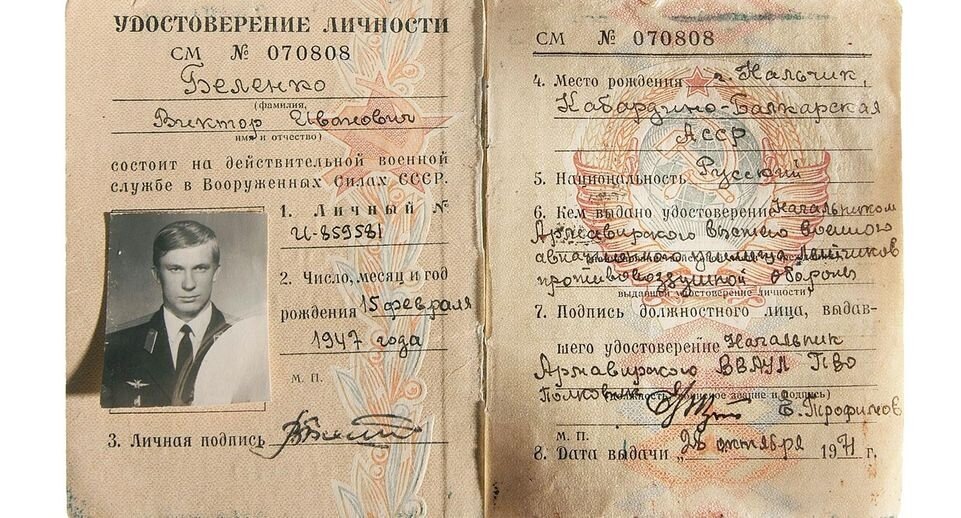 УДОСТОВЕРЕНИЕ ЛИЧНОСТИ
СМ № 070808
Беленко
(фамилия,
Виктор Иванович
имя и отчество)
состоит на действительной военной
службе в Вооруженных Силах СССР.
1. Личный №
И-859581
2. Число, месяц и год
рождения 15 февраля
1947 года
М. П.
3. Личная подпись
СМ № 070808
4. Место рождения г. Нальчик,
Кабардино-Балкарская
АССР
5. Национальность Русский
6. Кем выдано удостоверение Начальником
Армавирского высшего военного
авиационного училища летчиков
противовоздушной обороны
выдавшей удостоверение личности)
7. Подпись должностного лица, выдав-
шего удостоверение Начальник
Армавирского ВВАУЛ ПВО
полковник Е. Трофимов
(должность, воинское звание и подпись)
М. П.
8. Дата выдачи „28 октября 1971 г.